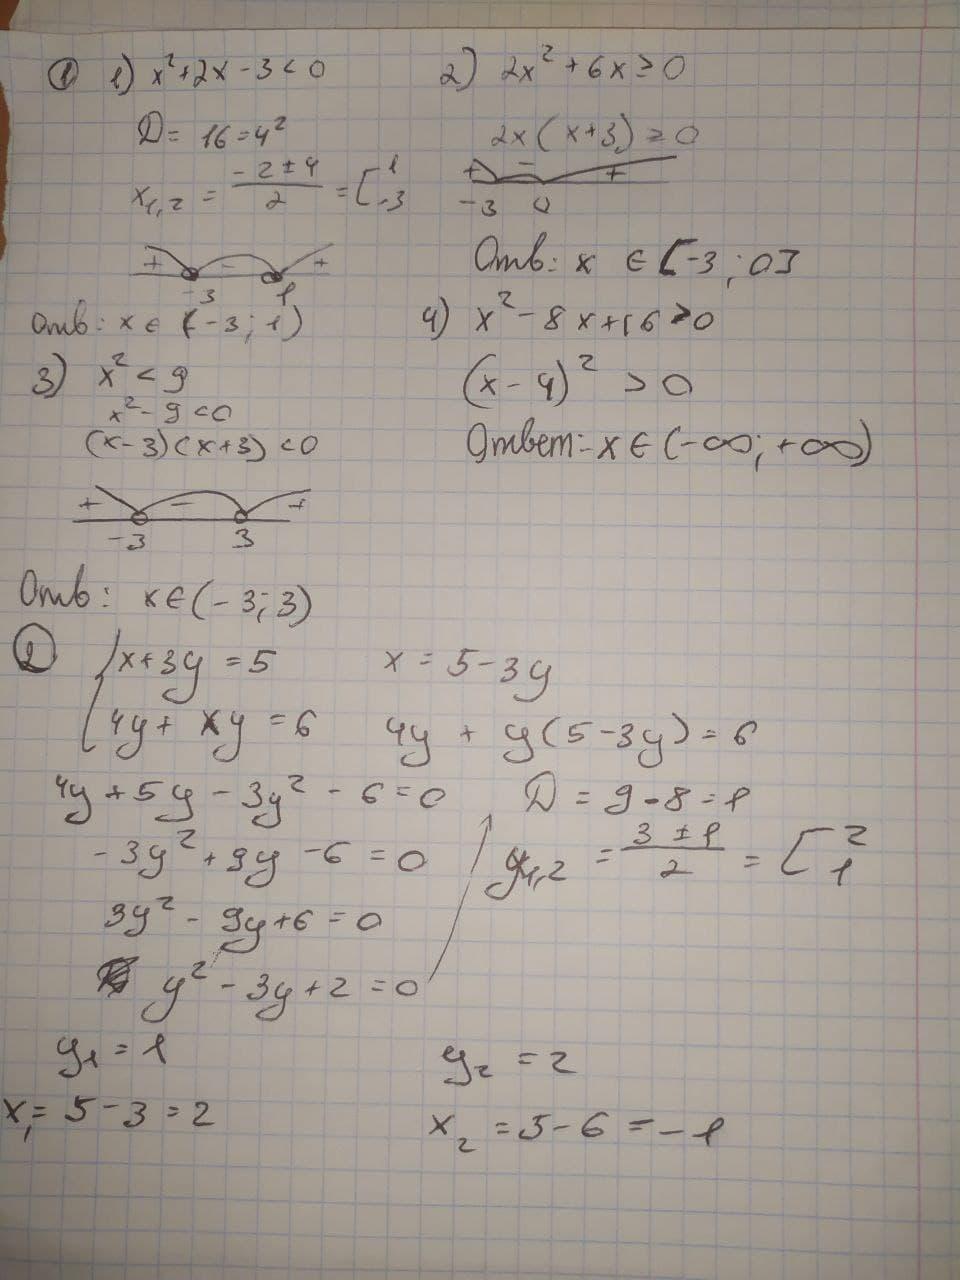 ① 1) x²+2x-3<0
D= 16=4²
x₁,₂ = (-2±4)/2 = [1 -3
+ - +
-3 1
Отв: x∈(-3; 1)
2) 2x²+6x≥0
2x(x+3)≥0
+ - +
-3 0
Отв: x ∈[-3; 0]
3) x²<9
x²-9<0
(x-3)(x+3)<0
+ - +
-3 3
Отв: x∈(-3; 3)
4) x²-8x+16>0
(x-4)²>0
Ответ: x∈(-∞; +∞)
② {x+3y=5
4y+xy=6
x=5-3y
4y+y(5-3y)=6
4y+5y-3y²-6=0
-3y²+9y-6=0
3y²-9y+6=0
y²-3y+2=0
D=9-8=1
y₁,₂=(3±1)/2=[2 1
y₁=1
x₁=5-3=2
y₂=2
x₂=5-6=-1